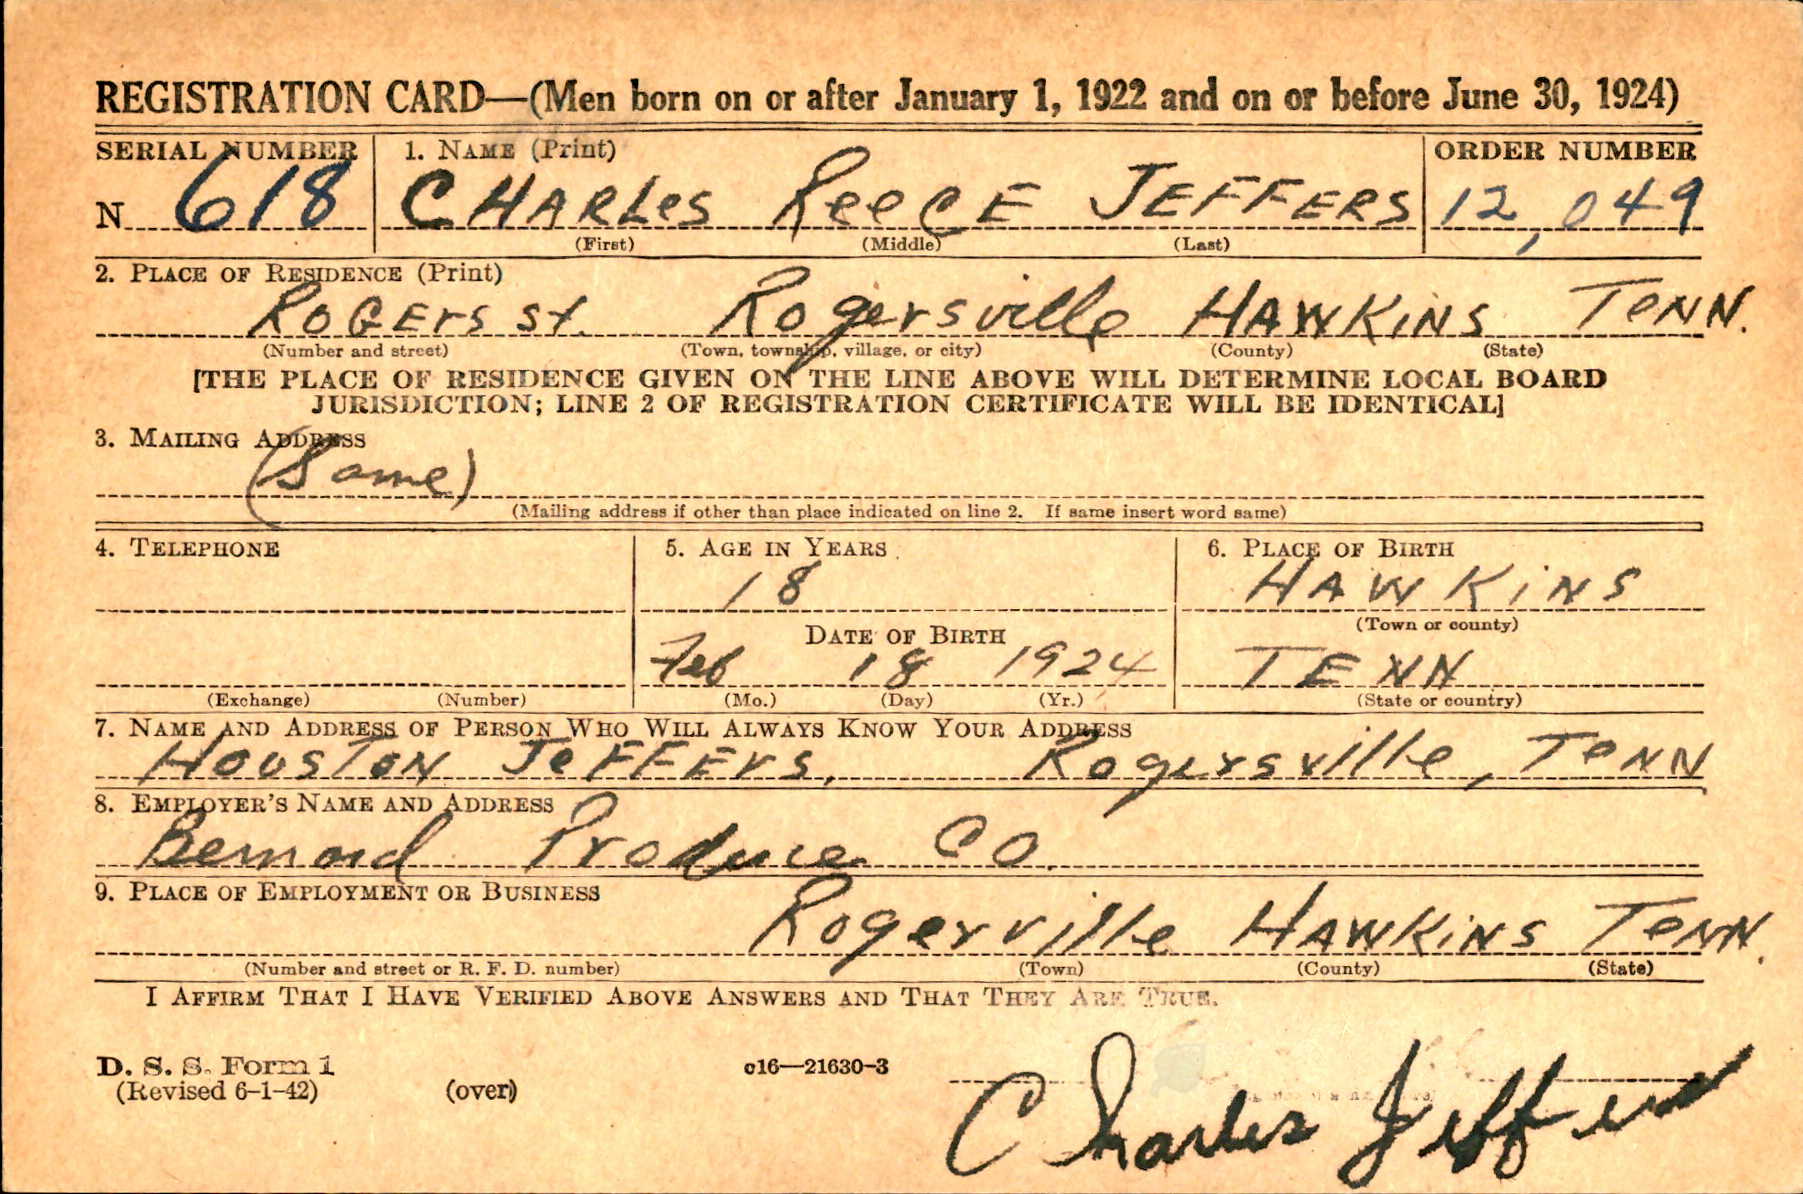 REGISTRATION CARD—(Men born on or after January 1, 1922 and on or before June 30, 1924)
SERIAL NUMBER 1. NAME (Print) ORDER NUMBER
N 618 CHARLes ReeCE JEFFERS 12,049
(First) (Middle) (Last)
2. PLACE OF RESIDENCE (Print)
ROGErs st. Rogersville HAWKiNS TeNN.
(Number and street) (Town, township, village, or city) (County) (State)
[THE PLACE OF RESIDENCE GIVEN ON THE LINE ABOVE WILL DETERMINE LOCAL BOARD
JURISDICTION; LINE 2 OF REGISTRATION CERTIFICATE WILL BE IDENTICAL]
3. MAILING ADDRESS
(Same)
(Mailing address if other than place indicated on line 2. If same insert word same)
4. TELEPHONE 5. AGE IN YEARS 6. PLACE OF BIRTH
18 HAWKiNS
DATE OF BIRTH (Town or county)
Feb 18 1924 TENN
(Exchange) (Number) (Mo.) (Day) (Yr.) (State or country)
7. NAME AND ADDRESS OF PERSON WHO WILL ALWAYS KNOW YOUR ADDRESS
HousToN JeFFErs, Rogersville, TeNN
8. EMPLOYER'S NAME AND ADDRESS
Bernard Produce CO.
9. PLACE OF EMPLOYMENT OR BUSINESS
Rogerville HAWKiNS TeNN.
(Number and street or R. F. D. number) (Town) (County) (State)
I AFFIRM THAT I HAVE VERIFIED ABOVE ANSWERS AND THAT THEY ARE TRUE.
D. S. S. Form 1
(Revised 6-1-42) (over) c16—21630-3
Charles Jeffers